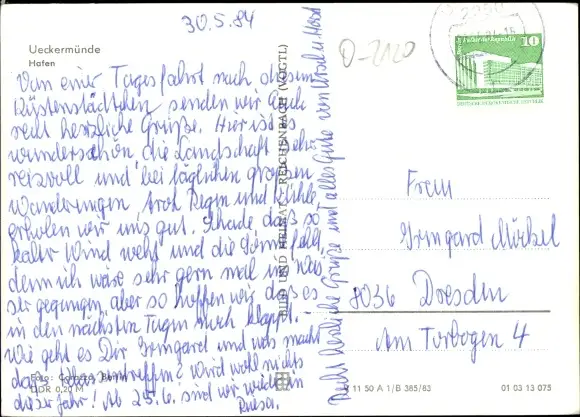 30.5.84
Ueckermünde
Hafen
Von einer Tagesfahrt nach diesem
Küstenstädtchen senden wir Euch
recht herzliche Grüße. Hier ist es
wunderschön, die Landschaft sehr
reizvoll und bei täglichen großen
Wanderungen, trotz Regen und Kühle
erholen wir uns gut. Schade daß so
kalter Wind weht und die Sonne fehlt,
denn ich wäre sehr gern mal ins Was-
ser gegangen, aber so hoffen wir, daß es
in den nächsten Tagen noch klappt. –
Wie geht es Dir Irmgard und was macht
das ? Wird wohl nichts
dieses Jahr! Ab 25.6. sind wir wieder in
Foto: Berlin
DDR 0,20 M
BILD UND HEIMAT REICHENBACH (VOGTL)
Recht herzliche Grüße und alles Gute von Ursel u. Horst
O-2120
10
DEUTSCHE DEMOKRATISCHE REPUBLIK
Frau
Irmgard
8036 Dresden
Am Torbogen 4
11 50 A 1/B 385/83
01 03 13 075